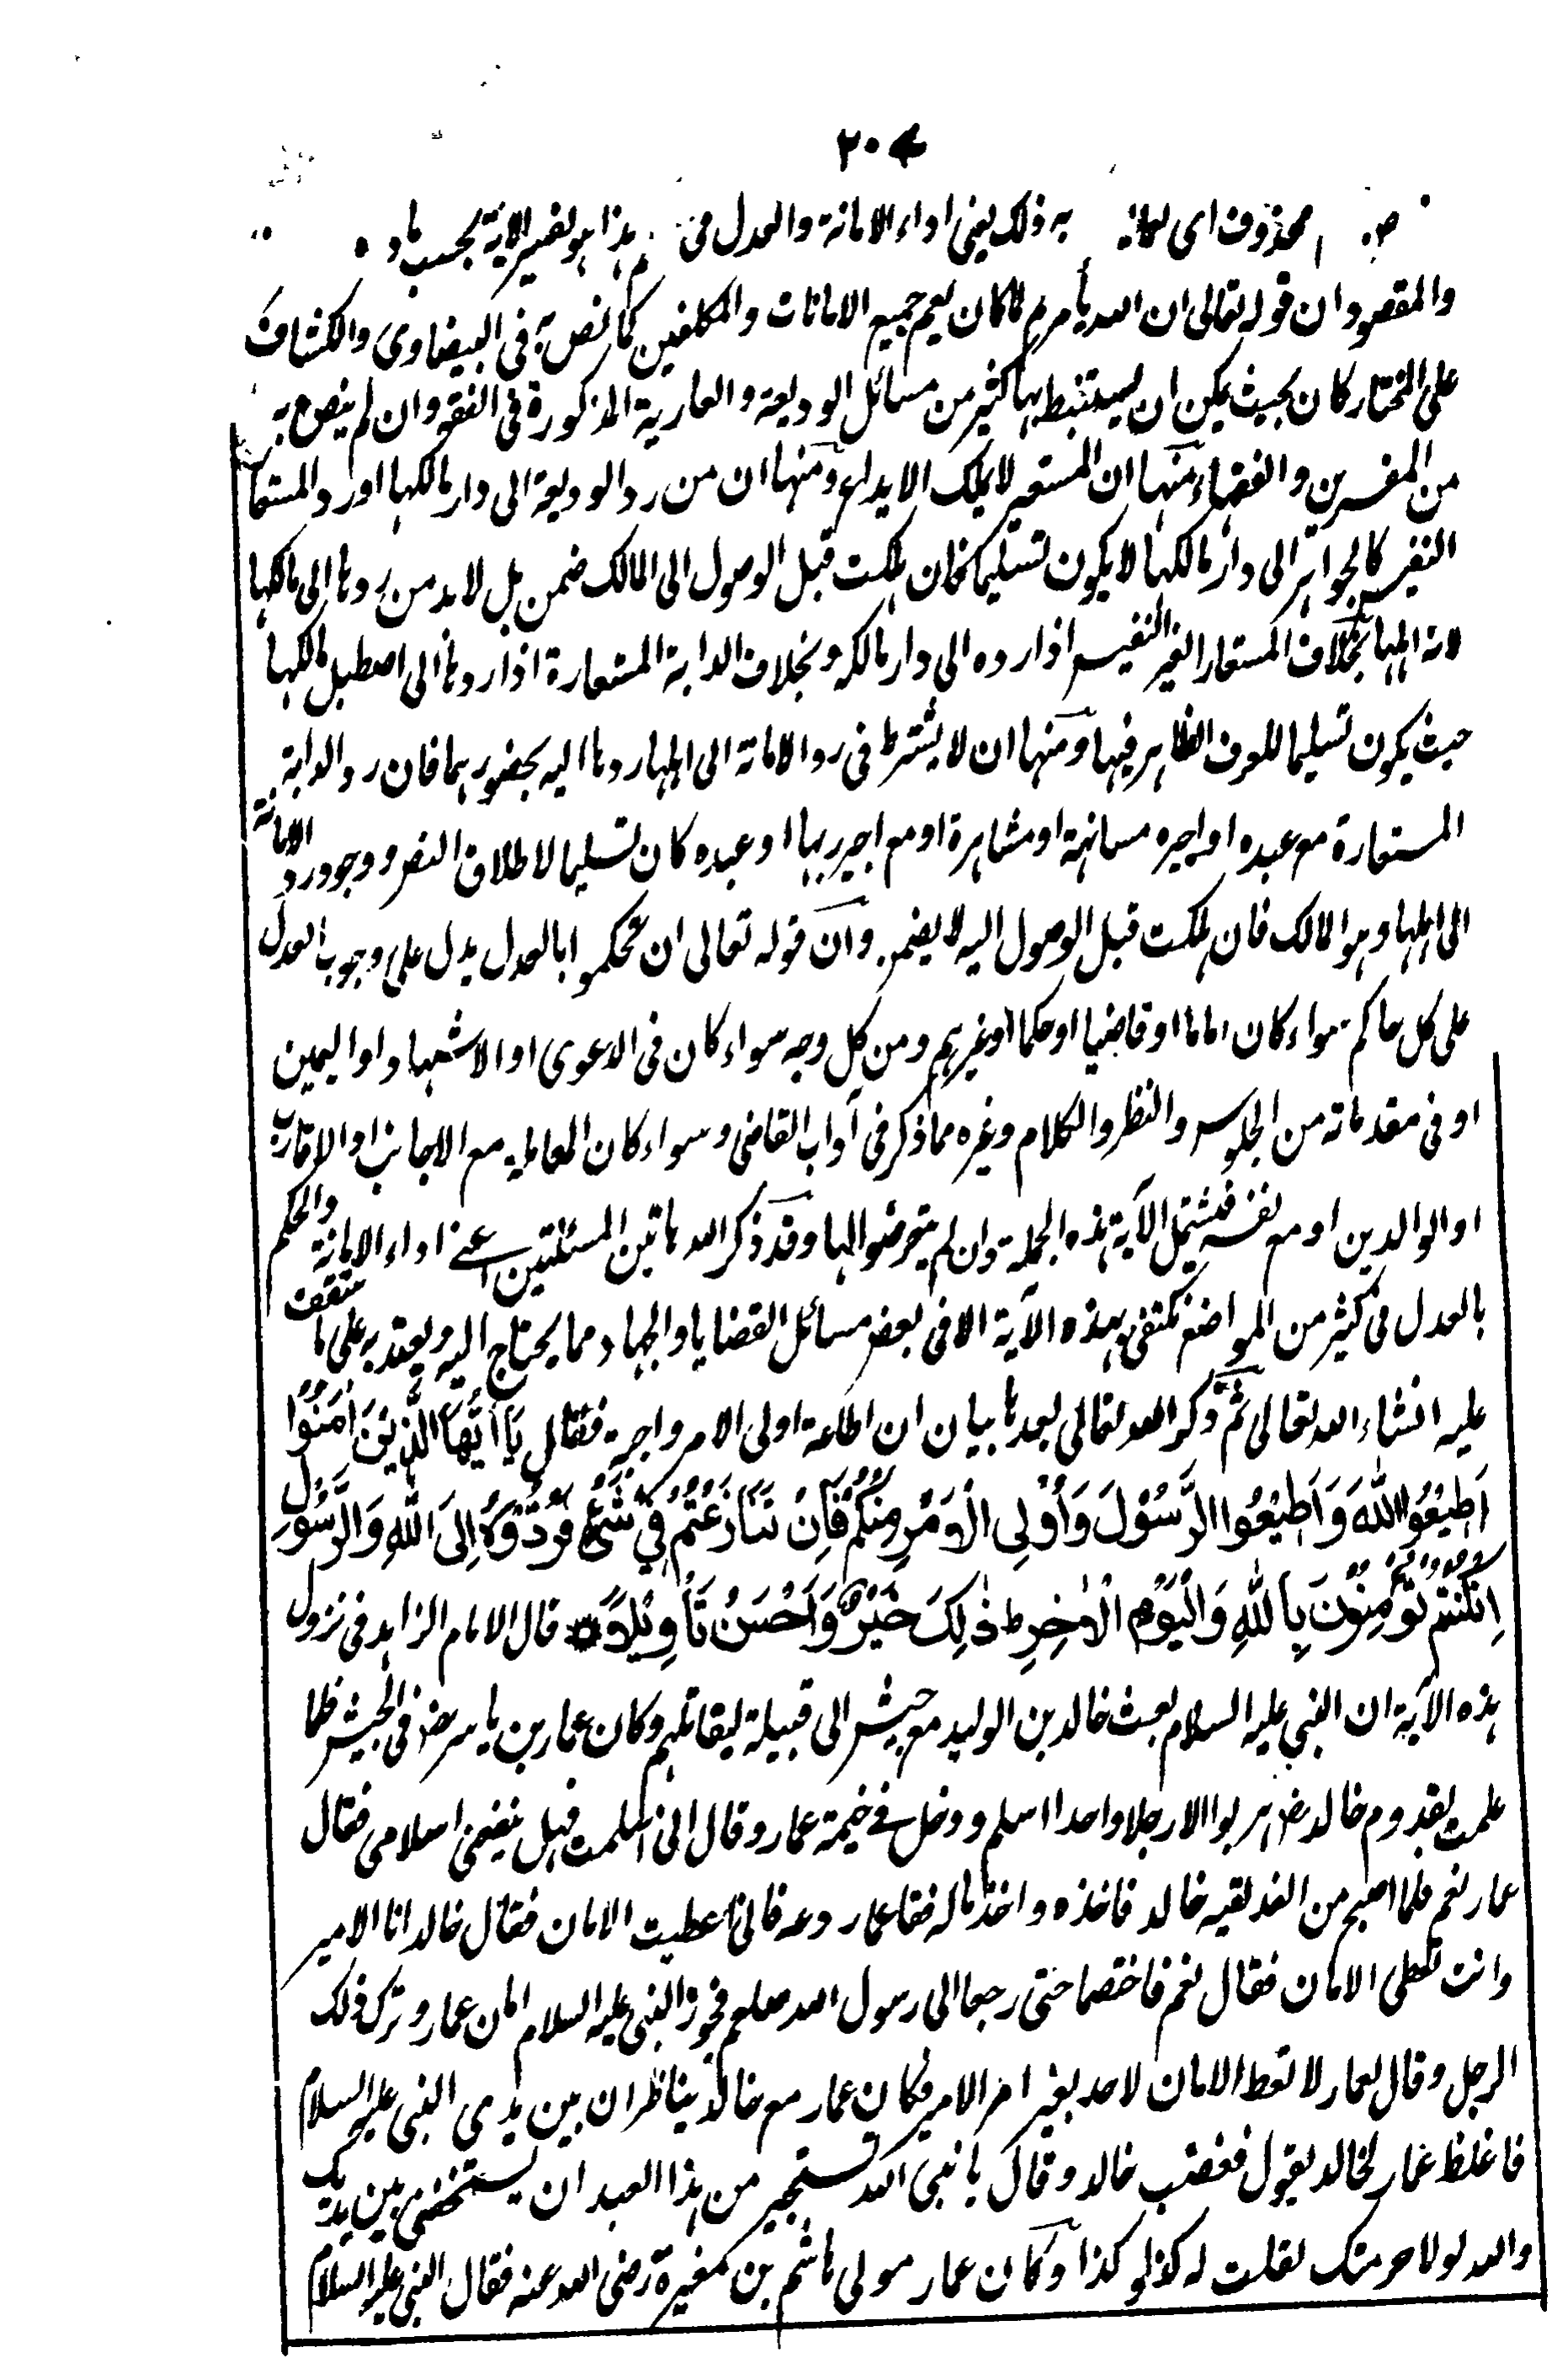 ٢٠٤
محذوف اى به ذلك يعنى اداء الامانة والعدل هذا هو تفسير الآية بحسب
والمقصود ان قوله تعالى ان الله يأمركم لما كان يعم جميع الامانات والمكلفين كما نص به فى البيضاوى والكشاف
على المختار كان بحيث يمكن ان يستنبط بها كثير من مسائل الوديعة والعارية المذكورة فى الفقه وان لم ينص به
من المفسرين والفقهاء منها ان المستعير لا يملك الايداع ومنها ان من رد الوديعة الى دار مالكها او رد المستعار
النفيس كالجواهر الى دار مالكها لا يكون تسليما فان هلكت قبل الوصول الى المالك ضمن بل لابد من ردها الى مالكها
لانه اهلها بخلاف المستعار الغير النفيس اذا رده الى دار مالكه وبخلاف الدابة المستعارة اذا ردها الى اصطبل مالكها
حيث يكون تسليما للعرف الظاهر فيها ومنها ان لا يشترط فى رد الامانة الى اهلها ردها اليه بحضورهما فان رد الدابة
المستعارة مع عبده او اجيره مسانهة او مشاهرة او مع اجير ربها او عبده كان تسليما لاطلاق النص ووجود رد الامانة
الى اهلها وهو المالك فان هلكت قبل الوصول اليه لا يضمن وان قوله تعالى ان تحكموا بالعدل يدل على وجوب العدل
على كل حاكم سواء كان اماما او قاضيا او حكما او غيرهم ومن كل وجه سواء كان فى الدعوى او الاشهاد او اليمين
او فى مقدماته من الجلوس والنظر والكلام وغيره مما ذكر فى آداب القاضى وسواء كان المعاملة مع الاجانب او الاقارب
او الوالدين او مع نفسه فتشتمل الآية هذه الجملة وان لم يتعرضوا لها وقد ذكر الله هاتين المسئلتين اعنے اداء الامانة والحكم
بالعدل فى كثير من المواضع نكتفى بهذه الآية الا فى بعض مسائل القضايا والجهاد مما يحتاج اليه ويعتد به على ما ستقف
عليه انشاء الله تعالى ثم ذكر الله تعالى بعدها بيان ان اطاعة اولى الامر واجبة فقال يَا اَيُّهَا الَّذِيْنَ اٰمَنُوْا
اَطِيْعُوا اللهَ وَاَطِيْعُوا الرَّسُوْلَ وَاُوْلِى الْاَمْرِ مِنْكُمْ فَاِنْ تَنَازَعْتُمْ فِيْ شَيْءٍ فَرُدُّوْهُ اِلَى اللهِ وَالرَّسُوْلِ
اِنْ كُنْتُمْ تُؤْمِنُوْنَ بِاللهِ وَالْيَوْمِ الْاٰخِرِ ط ذٰلِكَ خَيْرٌ وَّاَحْسَنُ تَأْوِيْلًا قال الامام الزاهد فى نزول
هذه الآية ان النبي عليه السلام بعث خالد بن الوليد مع جيش الى قبيلة ليقاتلهم وكان عمار بن ياسر رض فى الجيش فلما
علمت بقدوم خالد رض هربوا الا رجلا واحدا اسلم ودخل فے خيمة عمار وقال انى اسلمت فهل ينفعنى اسلامى فقال
عمار نعم فلما اصبح من الغد لقيه خالد فاخذه واخذ ماله فقا عمار دعه فانى اعطيت الامان فقال خالد انا الامير
وانت تعطى الامان فقال نعم فاختصما حتى رجعا الى رسول الله صلعم فجوز النبى عليه السلام امان عمار وترك ذلك
الرجل وقال لعمار لا تعط الامان لاحد بغير امر الامير فكان عمار مع خالد يناظران بين يدى النبى عليه السلام
فاغلظ عمار لخالد بقول فغضب خالد وقال يا نبى الله تستجير من هذا العبد ان يستخفنى بين يديك
والله لولا حرمتك لقلت له كذا وكذا وكان عمار مولى هاشم بن مغيرة رضى الله عنه فقال النبى عليه السلام